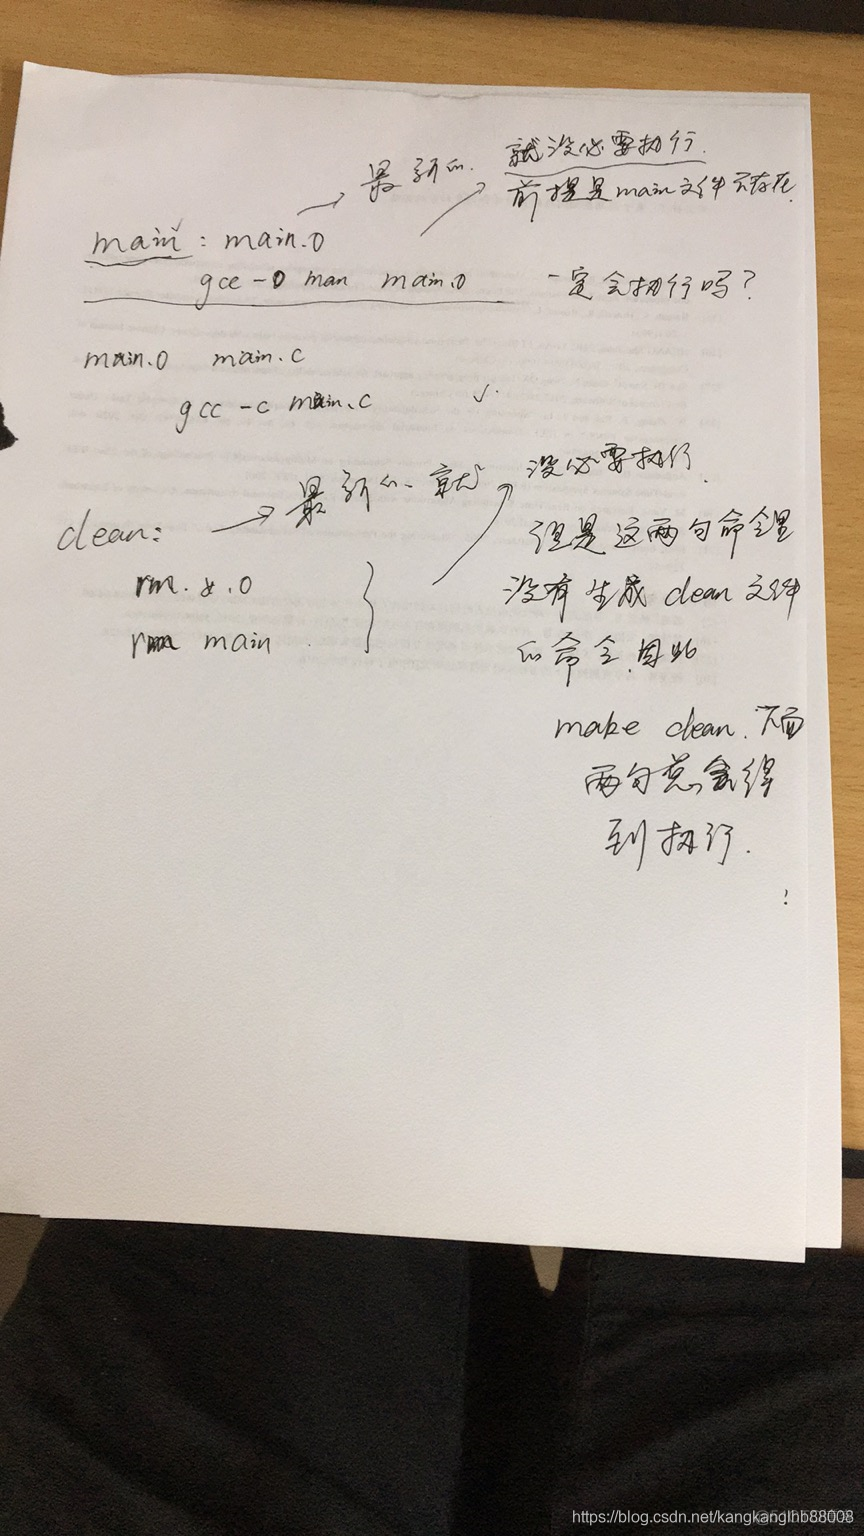 最新的.
就没必要执行.
前提是main文件不存在.
main : main.o
gcc -o man main.o
一定会执行吗?
main.o main.c
gcc -c main.c
最新的. 就
没必要执行.
clean:
rm *.o
rm main
但是这两句命令里
没有生成clean文件
的命令.因此
make clean.下面
两句总会得
到执行.
https://blog.csdn.net/kangkanglhb88008